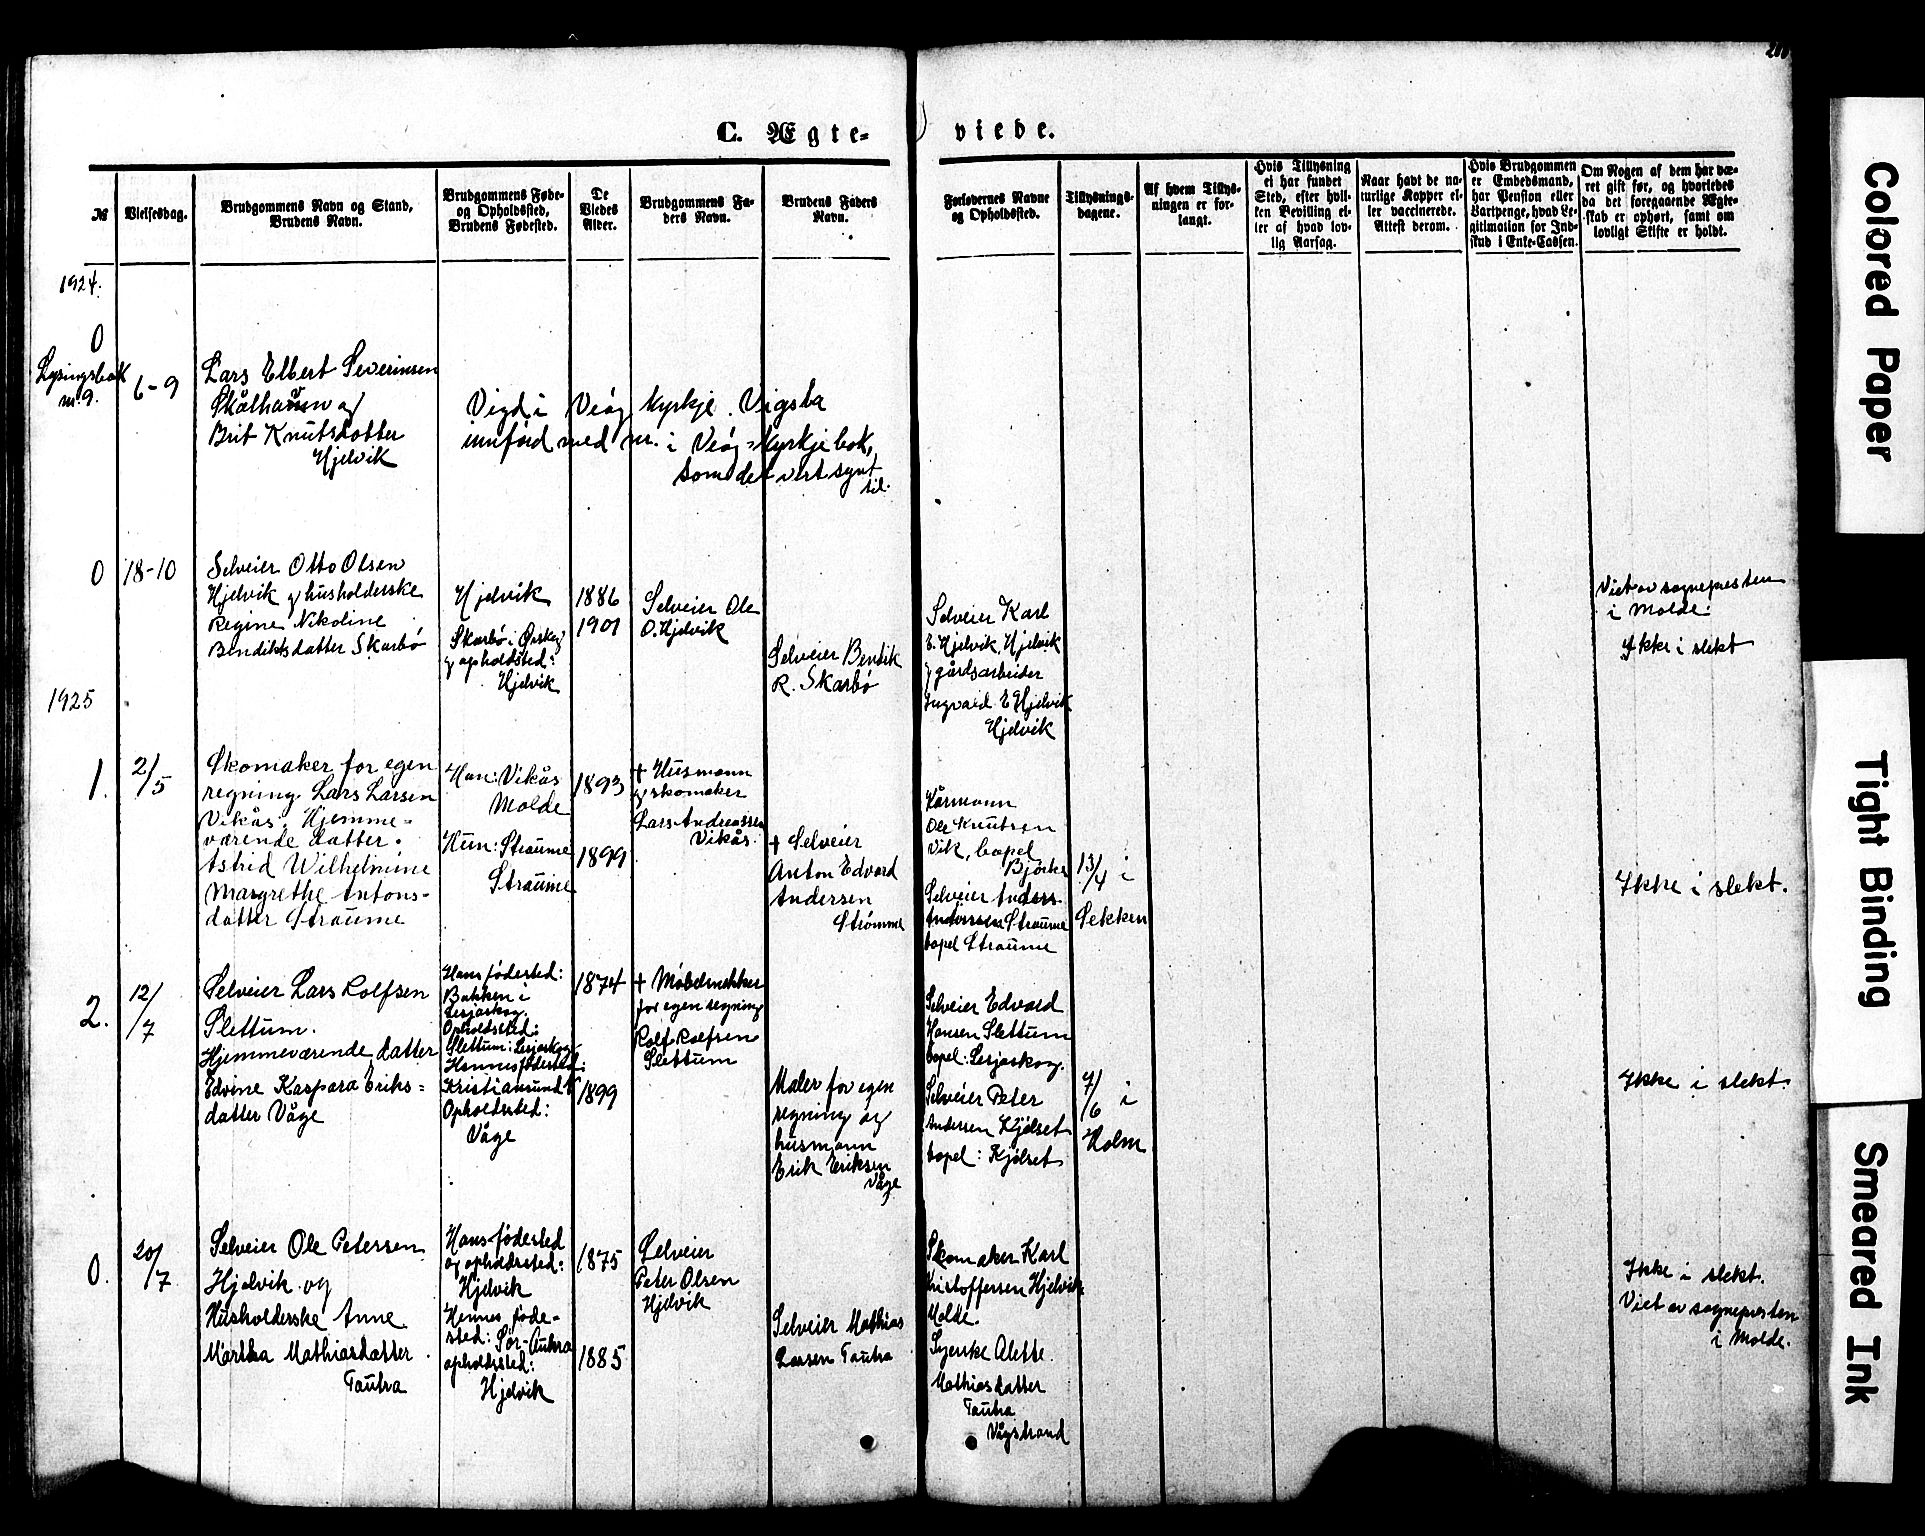 C. Ægte-
viede.
№
Vielsesdag.
Brudgommens Navn og Stand,
Brudens Navn.
Brudgommens Føde-
og Opholdssted,
Brudens Fødested.
De
Viedes
Alder.
Brudgommens Fa-
ders Navn.
Brudens Faders
Navn.
Forlovernes Navne
og Opholdssted.
Tillysnings-
dagene.
Af hvem Tillys-
ningen er for-
langt.
Hvis Tillysning
ei har fundet
Sted, efter hvil-
ken Bevilling el-
ler af hvad lov-
lig Aarsag.
Naar havt de na-
turlige Kopper el-
ler vaccinerede.
Attest derom.
Hvis Brudgommen
er Embedsmand,
har Pension eller
Vartpenge, hvad Le-
gitimation for Ind-
skud i Enke-Cassen.
Om Nogen af dem har væ-
ret gift før, og hvorledes
da det foregaaende Ægte-
skab er ophørt, samt om
lovligt Skifte er holdt.
1924.
0
Lysingsbok
nr. 9.
6-9
Lars Elbert Severinsen
Skålhavn og
Brit Knutsdotter
Hjelvik
Vigd i Veøy kyrkje. Vigsla
innførd med nr. i Veøy-kyrkjebok,
som det vert synt
til.
0
18-10
Selveier Otto Olsen
Hjelvik og husholderske
Regine Nikoline
Bendiktsdatter Skarbø
Hjelvik
Skarbø i Ørskog
og opholdsted:
Hjelvik
1886
1901
Selveier Ole
O. Hjelvik
Selveier Bendik
R. Skarbø
Selveier Karl
E. Hjelvik, Hjelvik
og gårdsarbeider
Ingvald E Hjelvik
Hjelvik
Viet av sognepresten
i Molde.
Ikke i slekt
1925
1.
2/5
Skomaker for egen
regning Lars Larsen
Vikås. Hjemme-
værende datter.
Astrid Wilhelmine
Margrethe Antons-
datter Straume
Han: Vikås
Molde
Hun: Straume
Straume
1893
1899
+ Husmann
og skomaker
Lars Andreassen
Vikås.
+ Selveier
Anton Edvard
Andersen
Strømme
Kårmann
Ole Knutsen
Vik, bopel
Selveier Anders
Anderssen Straume
bopel Straume
13/4 i
Sekken
Ikke i slekt.
2.
12/7
Selveier Lars Rolfsen
Slettum.
Hjemmeværende datter
Edvine Kaspara Eriks-
datter Våge
Hans fødested:
Bakken i
Lesjaskog.
Opholdssted:
Slettum: Lesjaskog.
Hennes fødested:
Kristiansund N
Opholdssted:
Våge
1874
1899
+ Møbelsnekker
for egen regning
Rolf Rolfsen
Slettum
Maler for egen
regning og
husmann
Erik Eriksen
Våge
Selveier Edvard
Hansen Slettum
bopel: Lesjaskog.
Selveier Peter
Andersen Kjølset
bopel: Kjølset
7/6 i
Holm
Ikke i slekt.
0.
20/7
Selveier Ole Petersen
Hjelvik og
Husholderske Anne
Martha Mathiasdatter
Tautra
Hans fødested
og opholdssted:
Hjelvik
Hennes føde-
sted: Sør-Aukra
opholdssted:
Hjelvik
1875
1885
Selveier
Peter Olsen
Hjelvik
Selveier Mathias
Larsen Tautra
Skomaker Karl
Kristoffersen Hjelvik
Molde.
Syerske Alette
Mathiasdatter
Tautra
Vågstrand
Ikke i slekt.
Viet av sognepresten
i Molde.
Colored Paper
Tight Binding
Smeared Ink